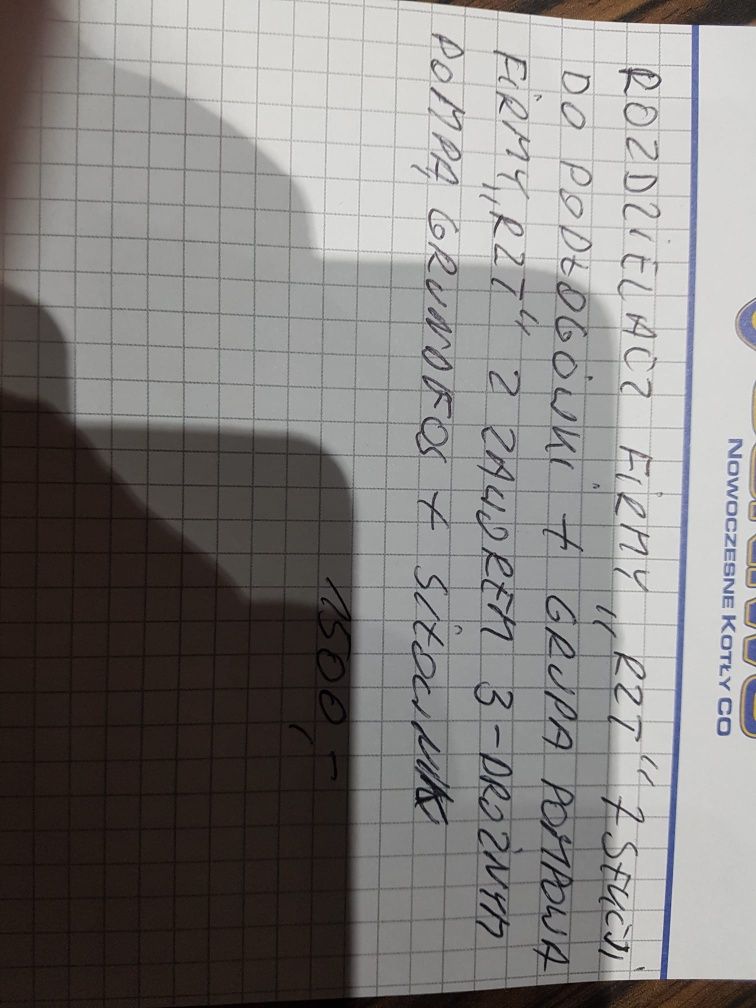 NOWOCZESNE KOTŁY CO
ROZDZIELACZ FIRMY „RZT" 7 SEKCJI
DO PODŁOGÓWKI + GRUPA POMPOWA
FIRMY „RZT" Z ZAWOREM 3-DROŻNYM
POMPĄ GRUNDFOS + SIŁOWNIK
1500,-